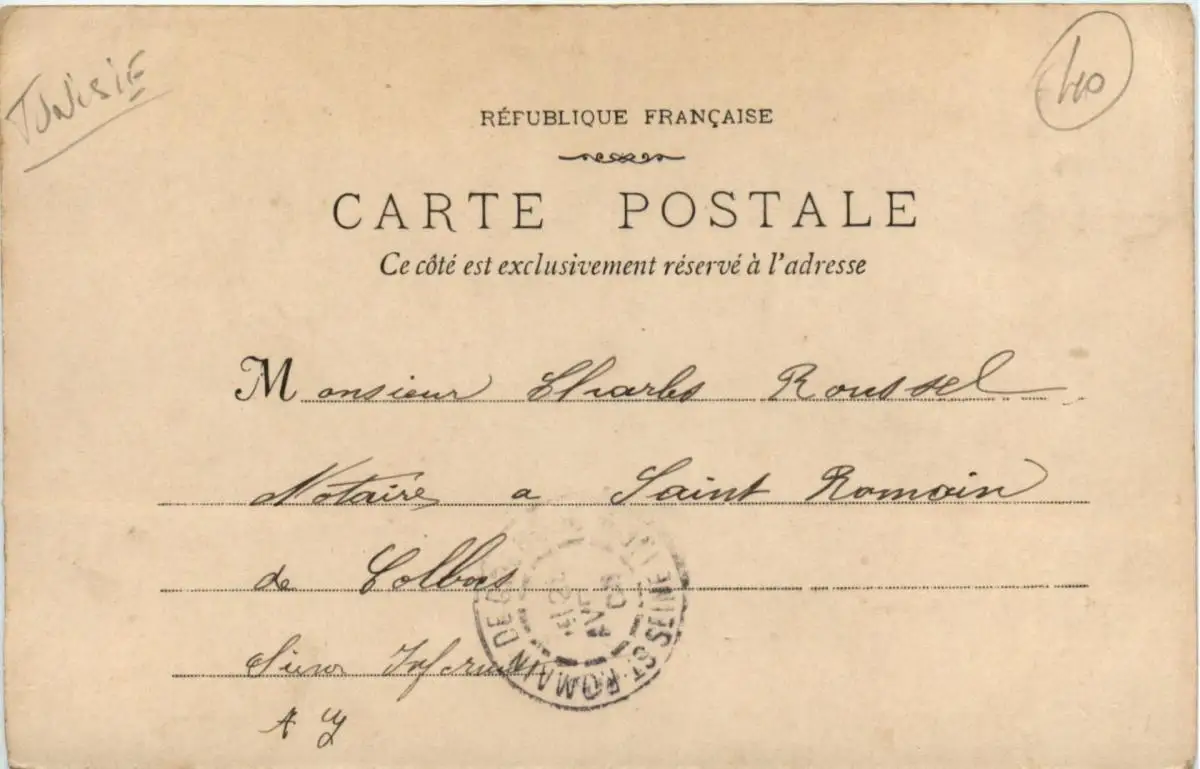 TUNISIE
40
RÉPUBLIQUE FRANÇAISE
CARTE POSTALE
Ce côté est exclusivement réservé à l'adresse
Monsieur Charles Roussel
Notaire a Saint Romain
de Colbos
Seine Infer
A Y
ST ROMAIN DE
SEINE